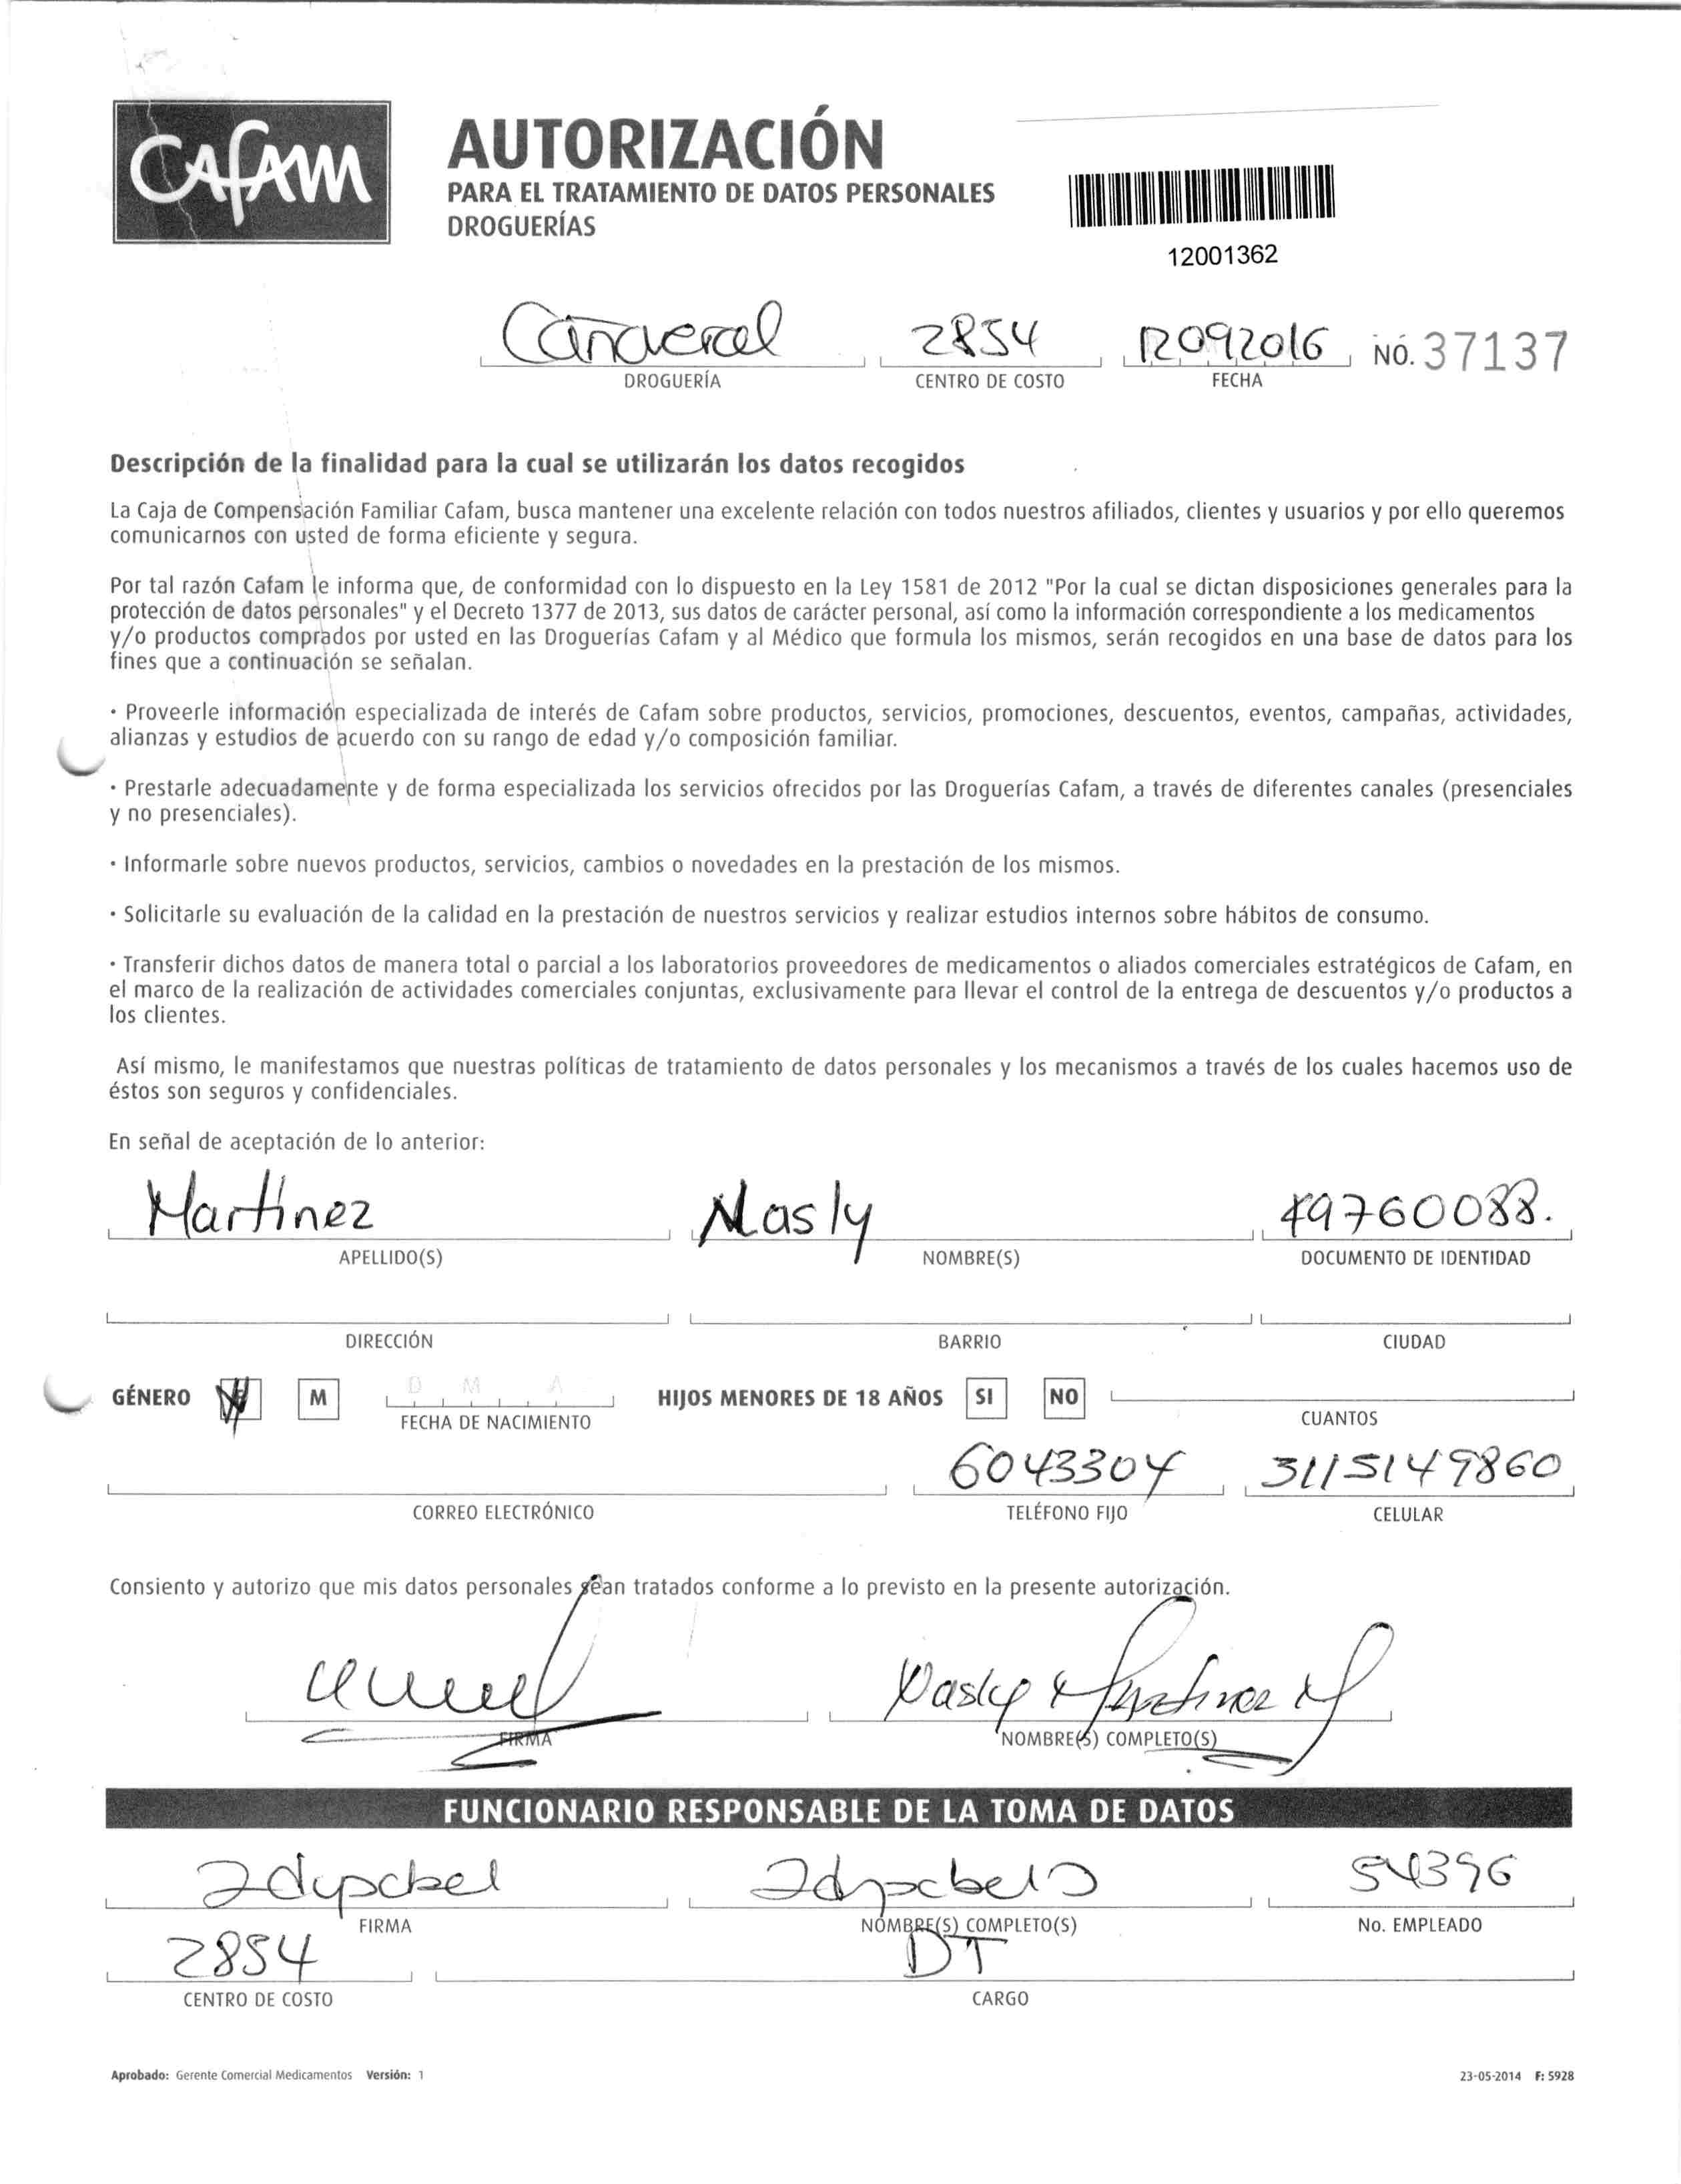 Cafam
AUTORIZACIÓN
PARA EL TRATAMIENTO DE DATOS PERSONALES
DROGUERÍAS
12001362
Cañaveral 2854 12092016 NO. 37137
DROGUERÍA CENTRO DE COSTO FECHA
Descripción de la finalidad para la cual se utilizarán los datos recogidos
La Caja de Compensación Familiar Cafam, busca mantener una excelente relación con todos nuestros afiliados, clientes y usuarios y por ello queremos
comunicarnos con usted de forma eficiente y segura.
Por tal razón Cafam le informa que, de conformidad con lo dispuesto en la Ley 1581 de 2012 "Por la cual se dictan disposiciones generales para la
protección de datos personales" y el Decreto 1377 de 2013, sus datos de carácter personal, así como la información correspondiente a los medicamentos
y/o productos comprados por usted en las Droguerías Cafam y al Médico que formula los mismos, serán recogidos en una base de datos para los
fines que a continuación se señalan.
· Proveerle información especializada de interés de Cafam sobre productos, servicios, promociones, descuentos, eventos, campañas, actividades,
alianzas y estudios de acuerdo con su rango de edad y/o composición familiar.
· Prestarle adecuadamente y de forma especializada los servicios ofrecidos por las Droguerías Cafam, a través de diferentes canales (presenciales
y no presenciales).
· Informarle sobre nuevos productos, servicios, cambios o novedades en la prestación de los mismos.
· Solicitarle su evaluación de la calidad en la prestación de nuestros servicios y realizar estudios internos sobre hábitos de consumo.
· Transferir dichos datos de manera total o parcial a los laboratorios proveedores de medicamentos o aliados comerciales estratégicos de Cafam, en
el marco de la realización de actividades comerciales conjuntas, exclusivamente para llevar el control de la entrega de descuentos y/o productos a
los clientes.
Así mismo, le manifestamos que nuestras políticas de tratamiento de datos personales y los mecanismos a través de los cuales hacemos uso de
éstos son seguros y confidenciales.
En señal de aceptación de lo anterior:
Martínez Nasly 49760088.
APELLIDO(S) NOMBRE(S) DOCUMENTO DE IDENTIDAD
DIRECCIÓN BARRIO CIUDAD
GÉNERO F M D M A HIJOS MENORES DE 18 AÑOS SI NO
FECHA DE NACIMIENTO CUANTOS
6043304 3115149860
CORREO ELECTRÓNICO TELÉFONO FIJO CELULAR
Consiento y autorizo que mis datos personales sean tratados conforme a lo previsto en la presente autorización.
Nasly Martínez M
FIRMA NOMBRE(S) COMPLETO(S)
FUNCIONARIO RESPONSABLE DE LA TOMA DE DATOS
54396
FIRMA NOMBRE(S) COMPLETO(S) No. EMPLEADO
2854 DT
CENTRO DE COSTO CARGO
Aprobado: Gerente Comercial Medicamentos Versión: 1 23-05-2014 F: 5928